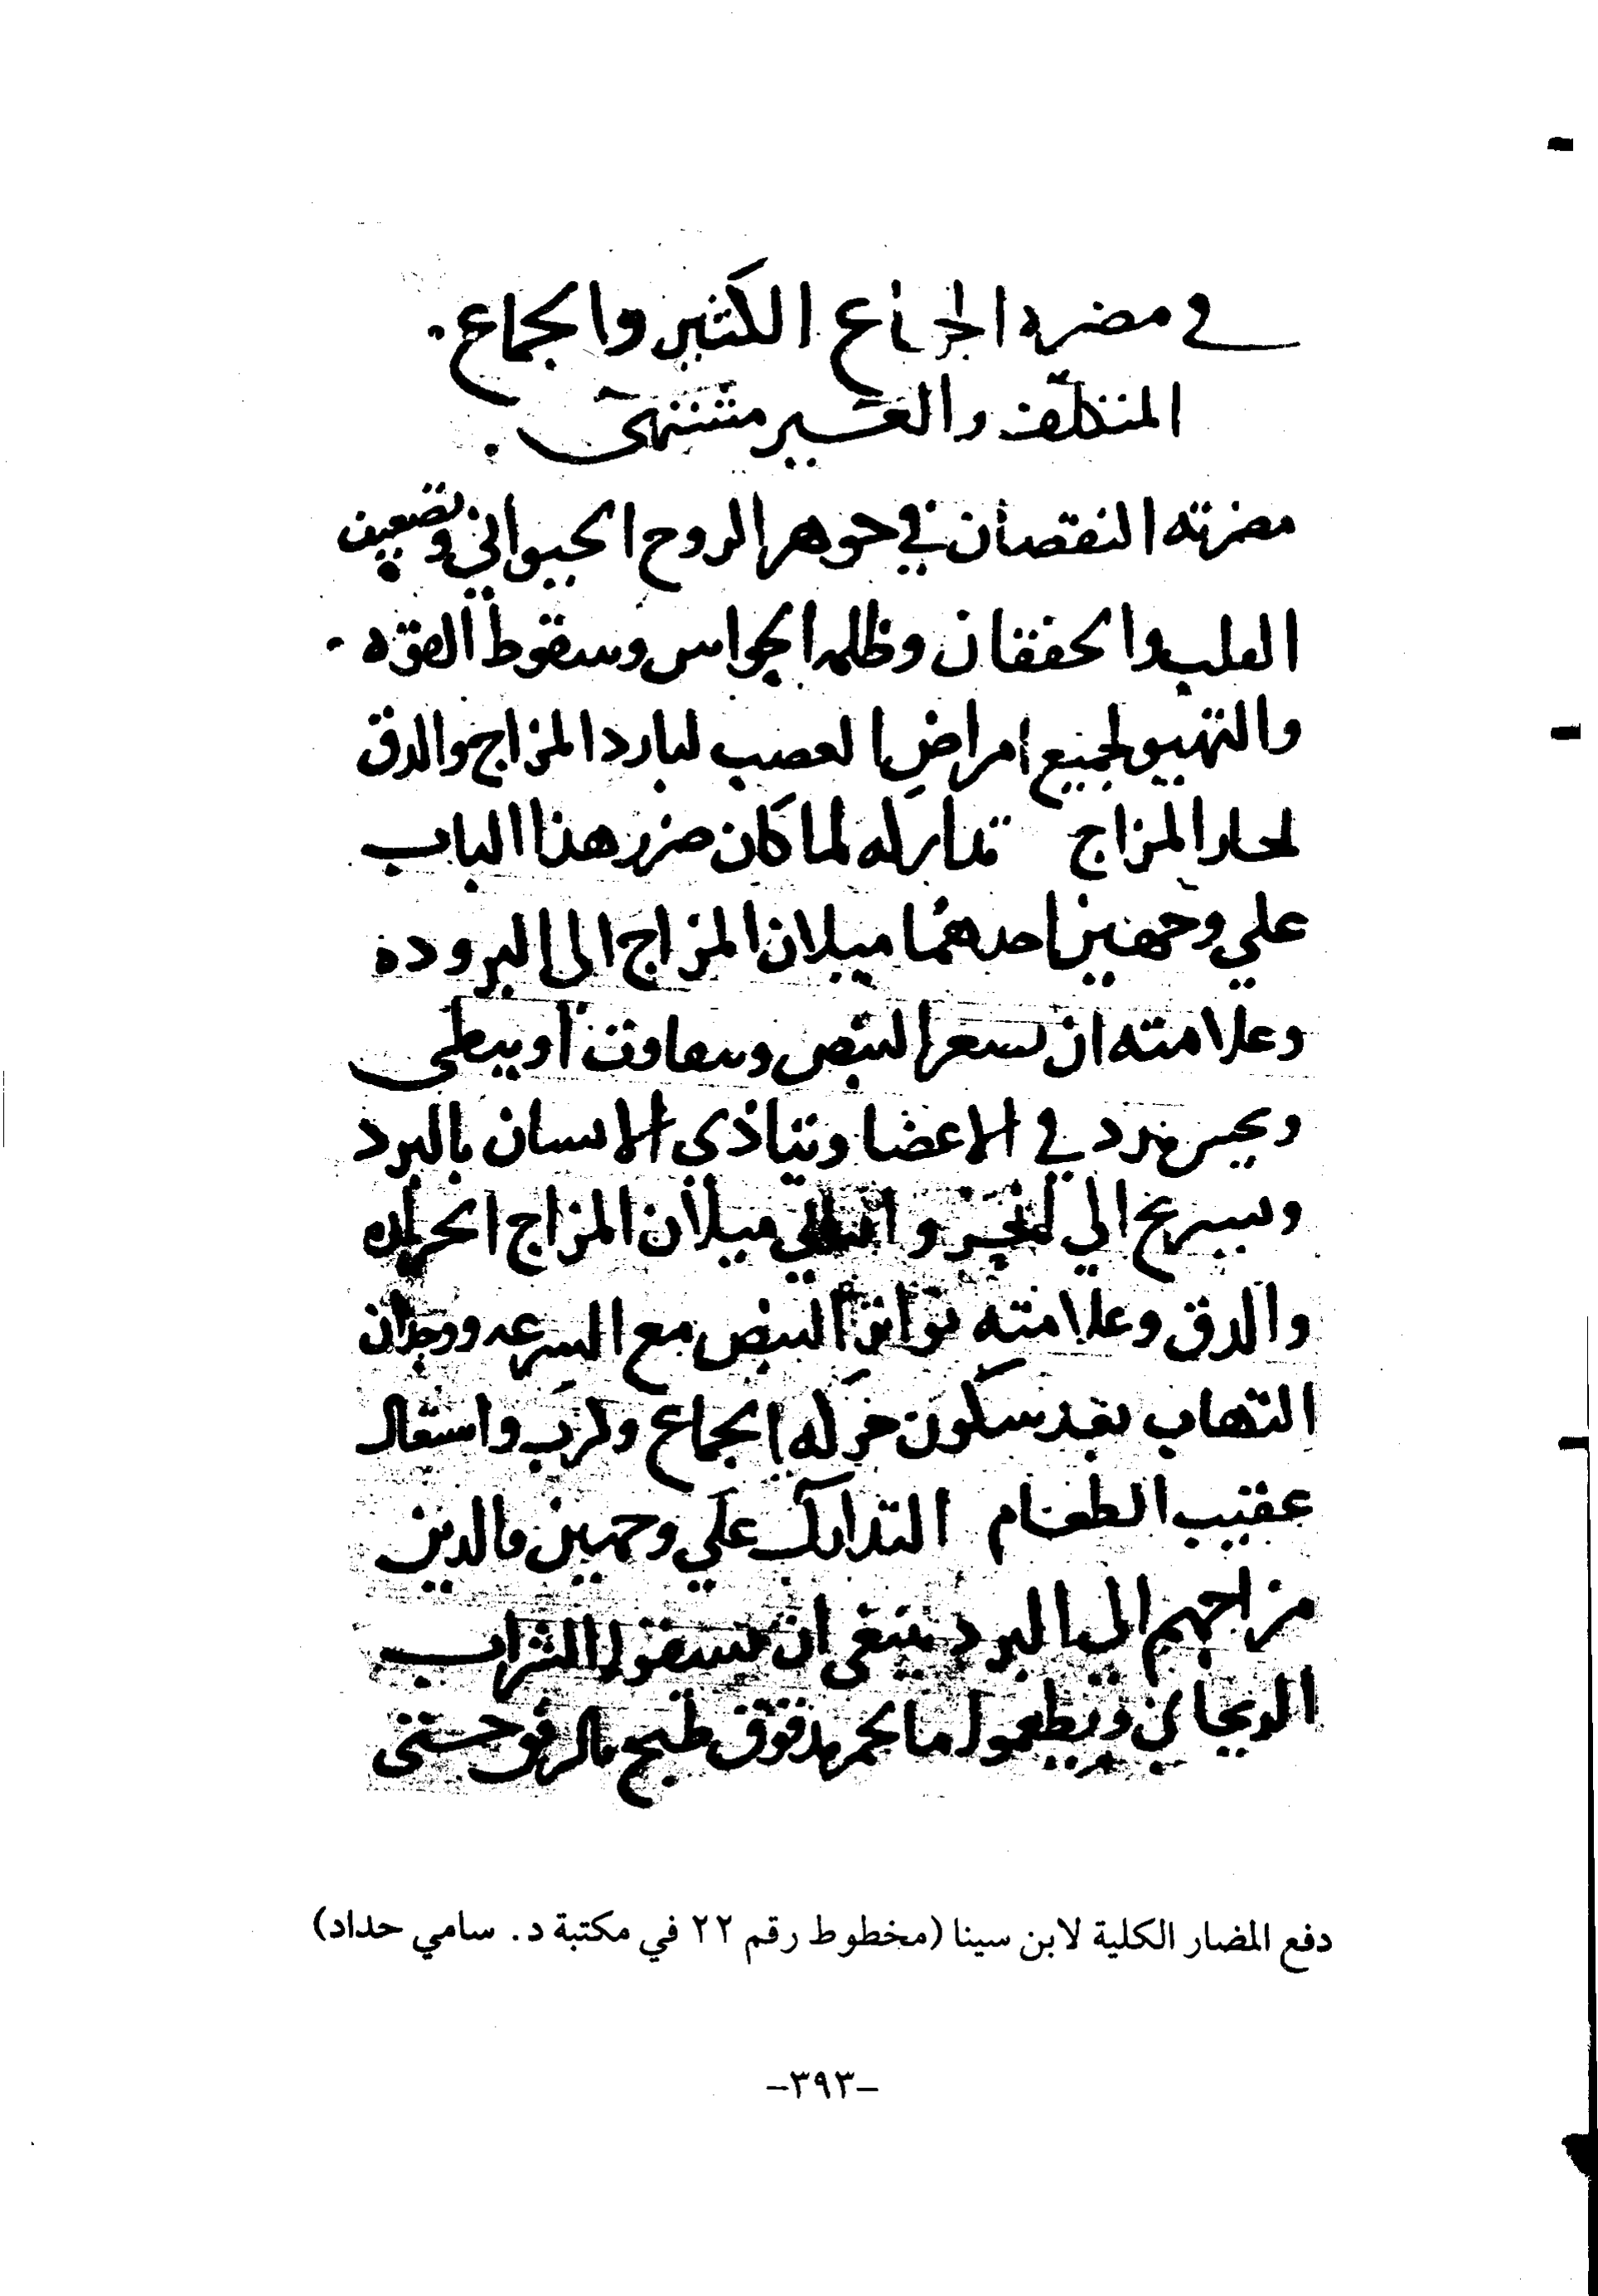 في مضره الجماع الكثير والجماع
المتكلف والغير مشتهى
مضرته النقصان في جوهر الروح الحيواني وتضعيف
القلب والخفقان وظلمه الحواس وسقوط القوه
والتهيو لجميع امراض العصب لبارد المزاج والدق
لحار المزاج تداركه لما كان ضرر هذا الباب
علي وجهين احدهما ميلان المزاج الى البروده
وعلامته ان يصغر النبض ويتفاوت او يبطي
ويحس ببرد في الاعضا ويتاذى الانسان بالبرد
ويستريح الي التسخين والثاني ميلان المزاج الحراره
والدق وعلامته تواتر النبض مع السرعه ووجدان
التهاب بعد سكون حركه الجماع وكرب واشتعال
عقيب الطعام التدارك علي وجهين فالذين
مزاجهم الى البرد ينبغي ان يسقوا الشراب
الريحاني ويطعموا ما لحم مدقوق طبخ بالرفق حتى
دفع المضار الكلية لابن سينا (مخطوط رقم ٢٢ في مكتبة د. سامي حداد)
-٣٩٣-